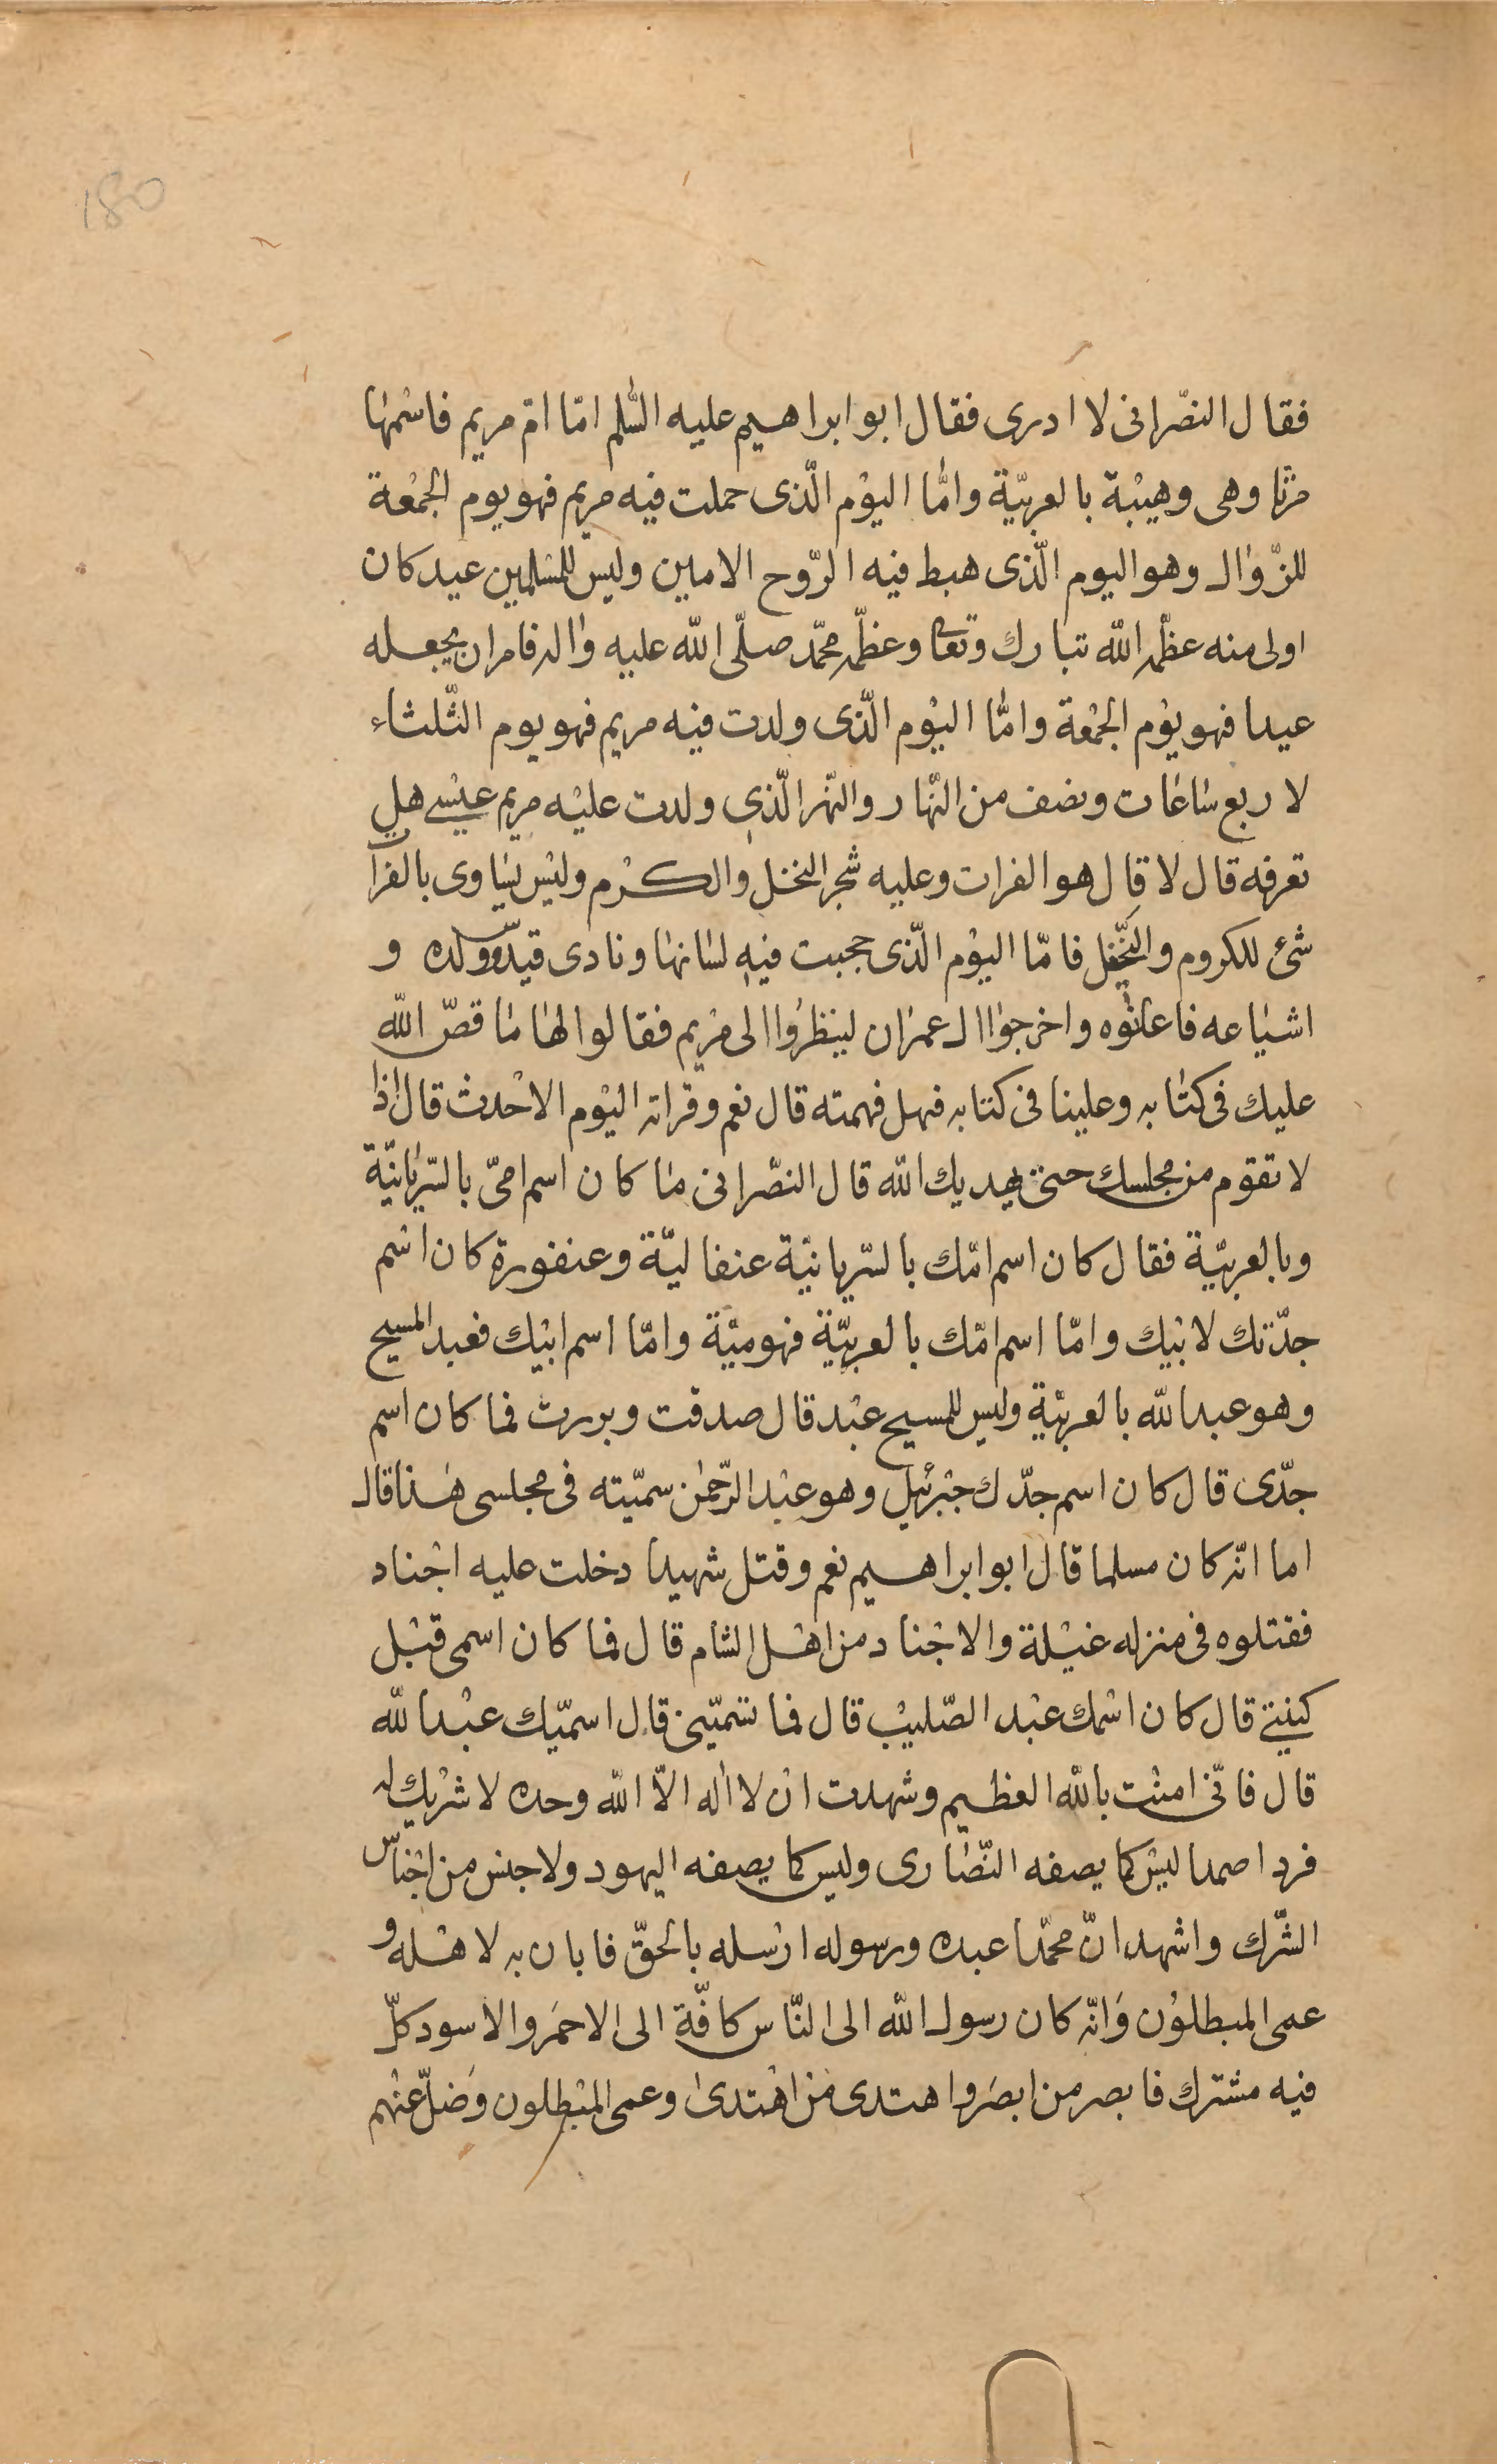 180
فقال النصّرانی لا ادری فقال ابو ابراهیم علیه السّلم امّا امّ مریم فاسْمها
مرْثا وهی وهیْبة بالعربیّة وامّا الیوْم الّذی حملت فیه مریم فهو یوم الجمْعة
للزّوال وهو الیوم الّذی هبط فیه الرّوح الامین ولیس للمسْلمین عید کان
اولی منه عظّمه اللّه تبارك وتعا وعظّمه محمّد صلّی اللّه علیه واله فامر ان یجعله
عیدا فهو یوْم الجمْعة وامّا الیوْم الّذی ولدت فیه مریم فهو یوم الثّلثاء
لا ربع ساعات ونصف من النّهار والنّهر الّذی ولدت علیْه مریم عیْسی هل
تعرفه قال لا قال هو الفرات وعلیه شجر النخل والکرْم ولیْس یساوی بالفرا
شئ للکروم والنّخیل فامّا الیوْم الّذی حجبت فیه لسانها ونادی قیدوس ولده و
اشیاعه فاعانوْه واخرجوْا ال عمران لینظروا الی مرْیم فقالوا لها ما قصّ اللّه
علیك فی کتابه وعلینا فی کتابه فهل فهمته قال نعم وقراته الیوْم الاحْدث قال اذا
لا تقوم من مجلسك حتی یهدیك اللّه قال النصْرانی ما کان اسم امیّ بالسّریانیّة
وبالعربیّة فقال کان اسم امّك بالسّریانیّة عنفالیّة وعنفورة کان اسْم
جدّتك لابیْك وامّا اسم امّك بالعربیّة فهو میّة وامّا اسم ابیْك فعبد المسیح
وهو عبد اللّه بالعربیّة ولیس للمسیح عبْد قال صدقت وبررت فما کان اسم
جدّی قال کان اسم جدّك جبْرئیل وهو عبْد الرّحمٰن سمیّته فی مجلسی هٰذا قال
اما انّه کان مسلما قال ابو ابراهیم نعم وقتل شهیدا دخلت علیه اجْناد
فقتلوه فی منزله غیْلة والاجْناد من اهْل الشام قال فما کان اسمی قبْل
کنیتی قال کان اسْمك عبْد الصّلیْب قال فما تسّمیّنی قال اسمیّك عبْد اللّه
قال فانّی امنْت باللّه العظیم وشهدت انْ لا اله الّا اللّه وحده لا شرْیك له
فردا صمدا لیْس کما یصفه النّصاری ولیس کما یصفه الیهود ولا جنس من اجْناس
الشّرك واشهد انّ محمّدا عبده ورسوله ارْسله بالحقّ فابان به لاهْله و
عمی المبطلوْن وَانّه کان رسول اللّه الی النّاس کافّة الی الاحمَر والاسود کلّ
فیه مشترك فابصر من ابصَر واهتدی مَن اهْتدیٰ وعمی المبْطلون وَضلّ عنْهم